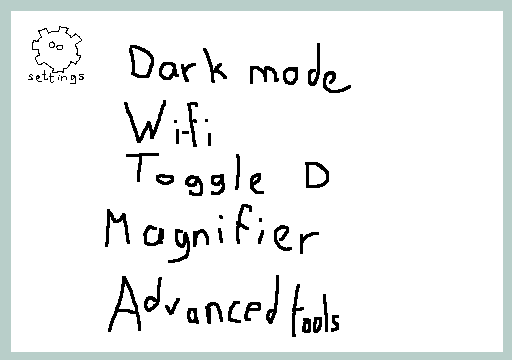 settings
Dark mode
Wi-fi
Toggle D
Magnifier
Advanced tools